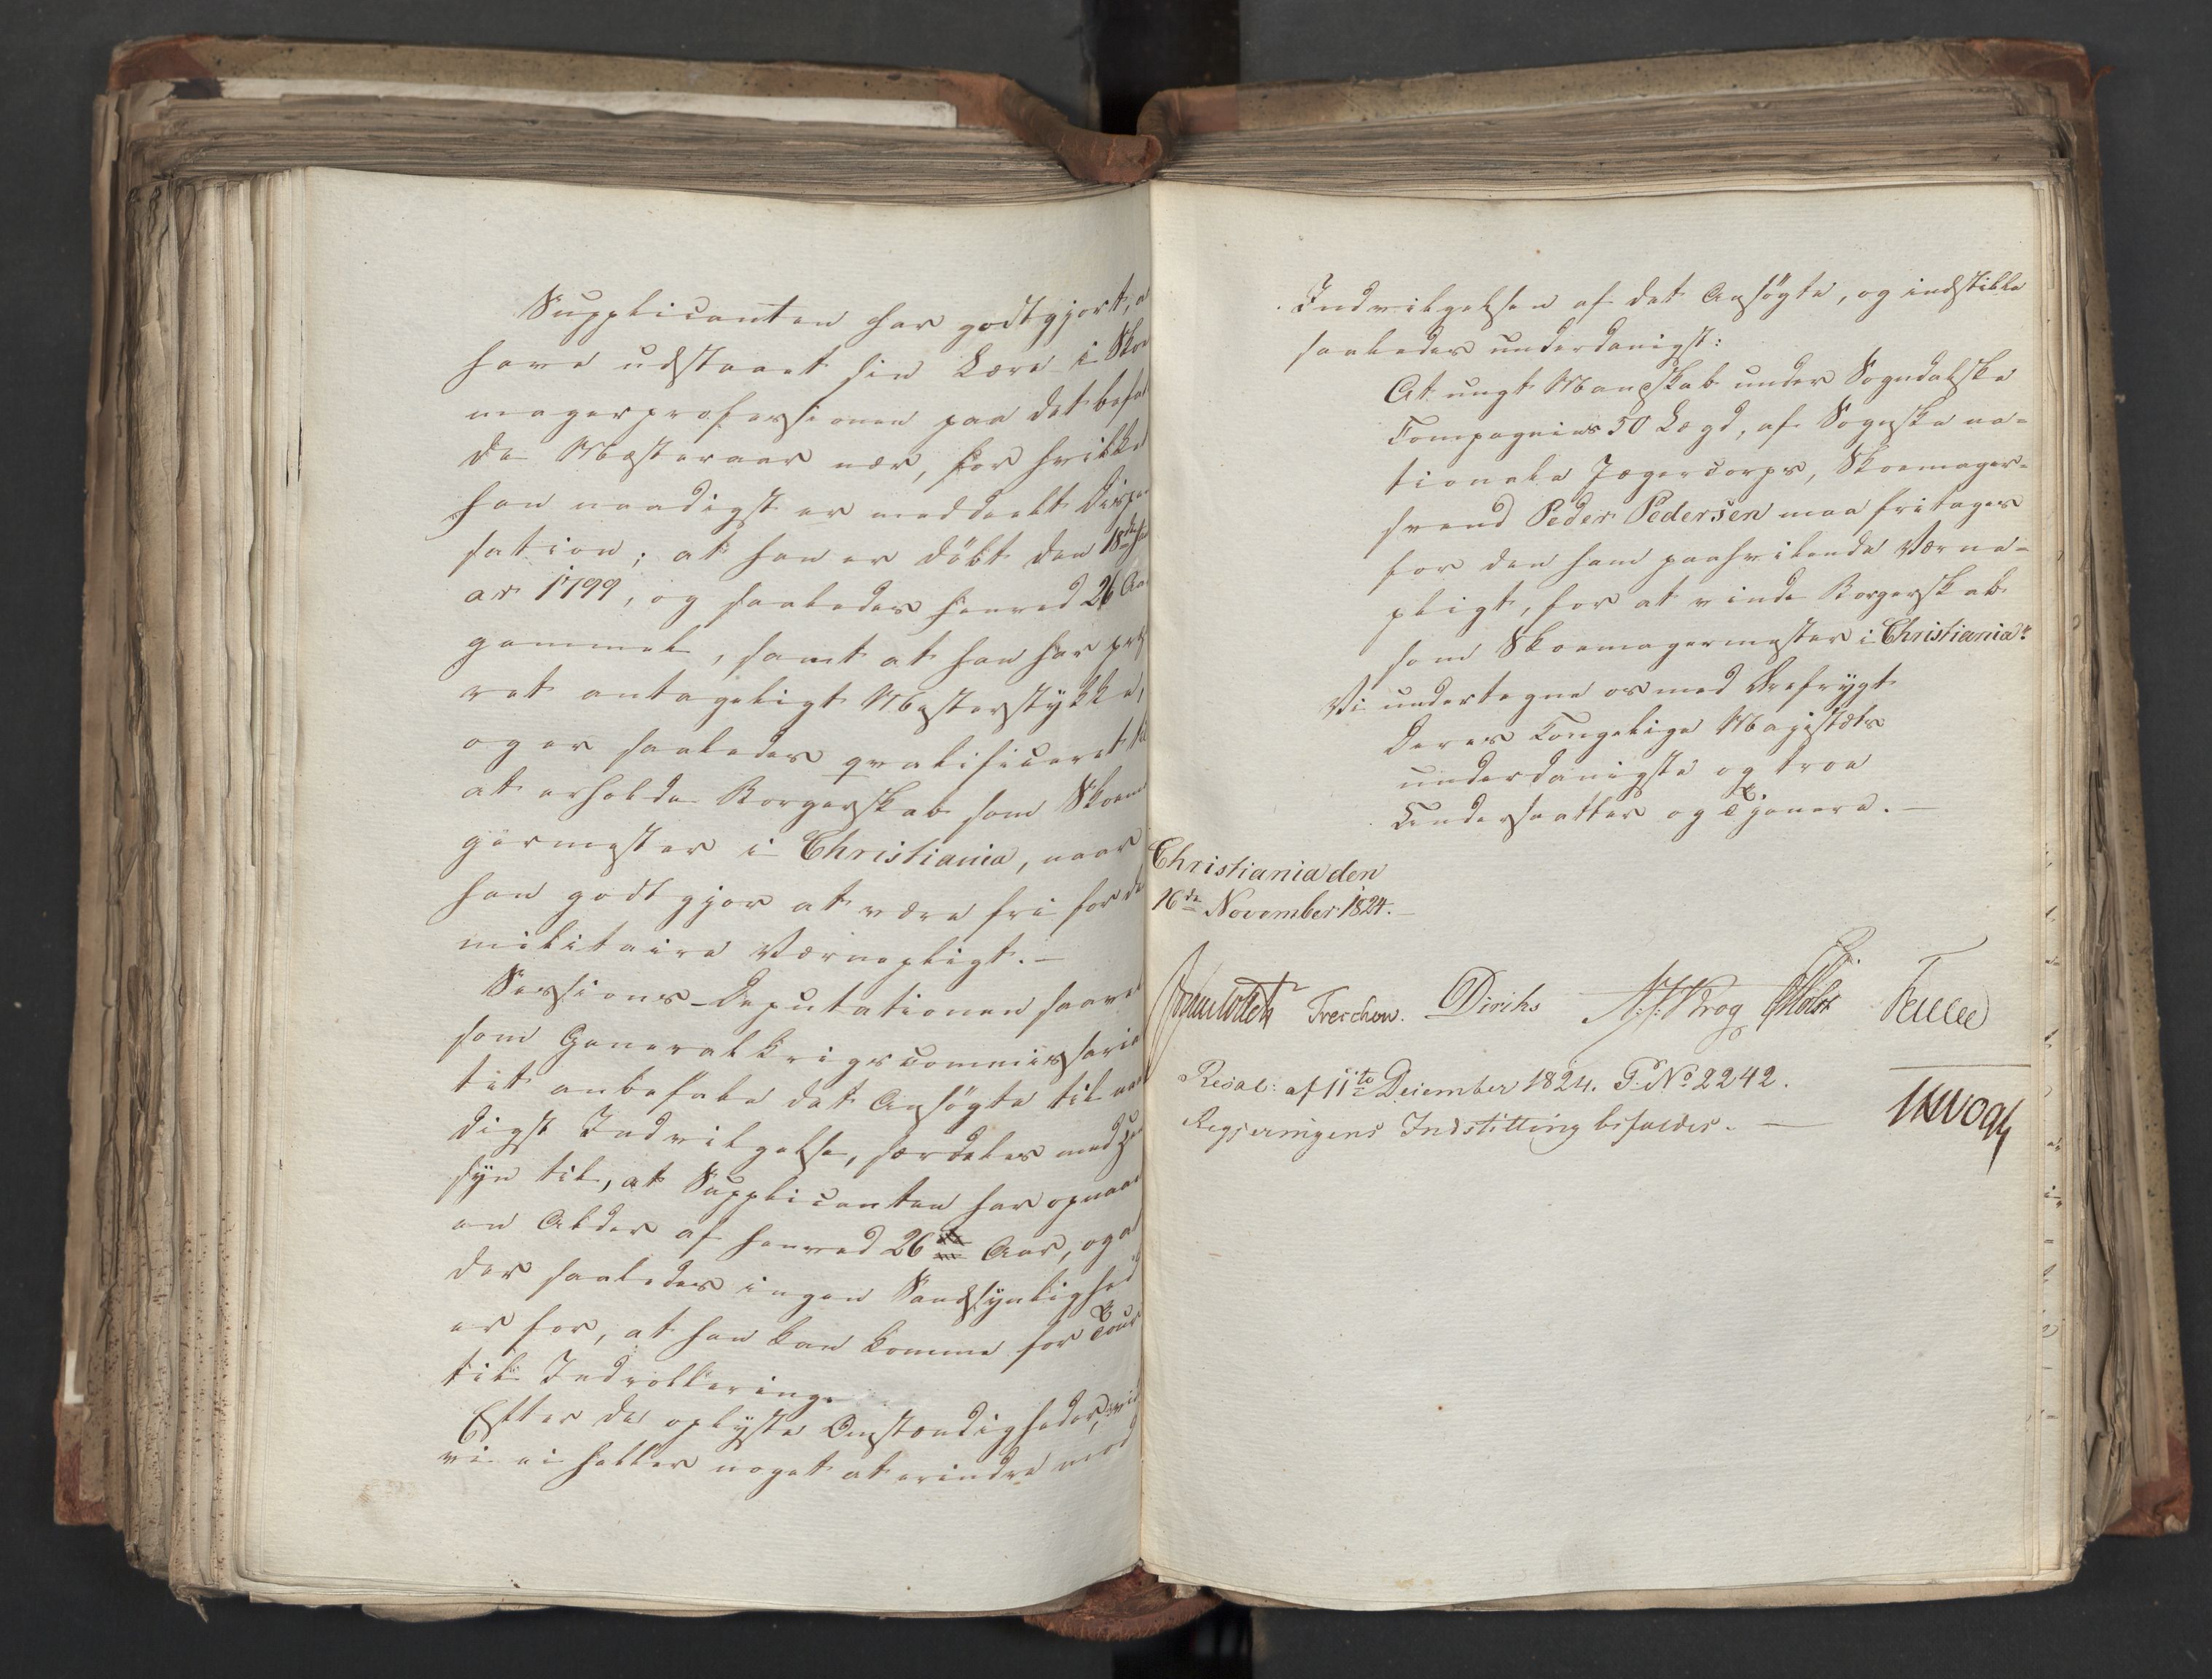 Supplicanten har godtgjort, a
have udstaaet sin Lære i Skoe
magerprofessionen paa det befal
de Mesteraar nær, for hvilke
han naadigst er meddeelt Dispen
sation; at han er døbt den 18de
ar 1799, og saaledes henved 26 Aar
gammel, samt at han har præ
ret antageligt Mesterstykke,
og er saaledes qvalificeret til
at erholde Borgerskab som Skoema
germester i Christiania, naar
han godtgjør at være fri for de
militaire Værnepligt. —
Sessions-Deputationen saavel
som Generalkrigscommissaria
tet anbefale det Ansøgte til naa
digst Indvilgelse, særdeles med Hen
syn til, at Supplicanten har opnaaet
en Alder af henved 26 Aar, og at
der saaledes ingen Sandsynlighed
er for, at han kan komme for Tour
til Indrollering.
Efter de oplyste Omstændigheder,
vi ei heller noget at erindre mod
Indvilgelsen af det Ansøgte, og indstille
saaledes underdanigst:
At ungt Mandskab under Sogndalske
Compagnies 50 Lægd, af Sognske na-
tionale Jægercorps, Skoemager-
svend Peder Pedersen maa fritages
for den ham paahvilende Værne-
pligt, for at vinde Borgerskab
som Skoemagermester i Christiania"
Vi undertegne os med Ærefrygt
Deres Kongelige Majestæts
underdanigste og troe
Undersaatter og Tjenere. —
Christiania den
16de November 1824. —
Jonas Collett Treschow. Diriks N. J. Krog Holst Fasting
Resol: af 11te December 1824. P: No 2242.
Regjeringens Indstilling bifaldes. —
Vogt